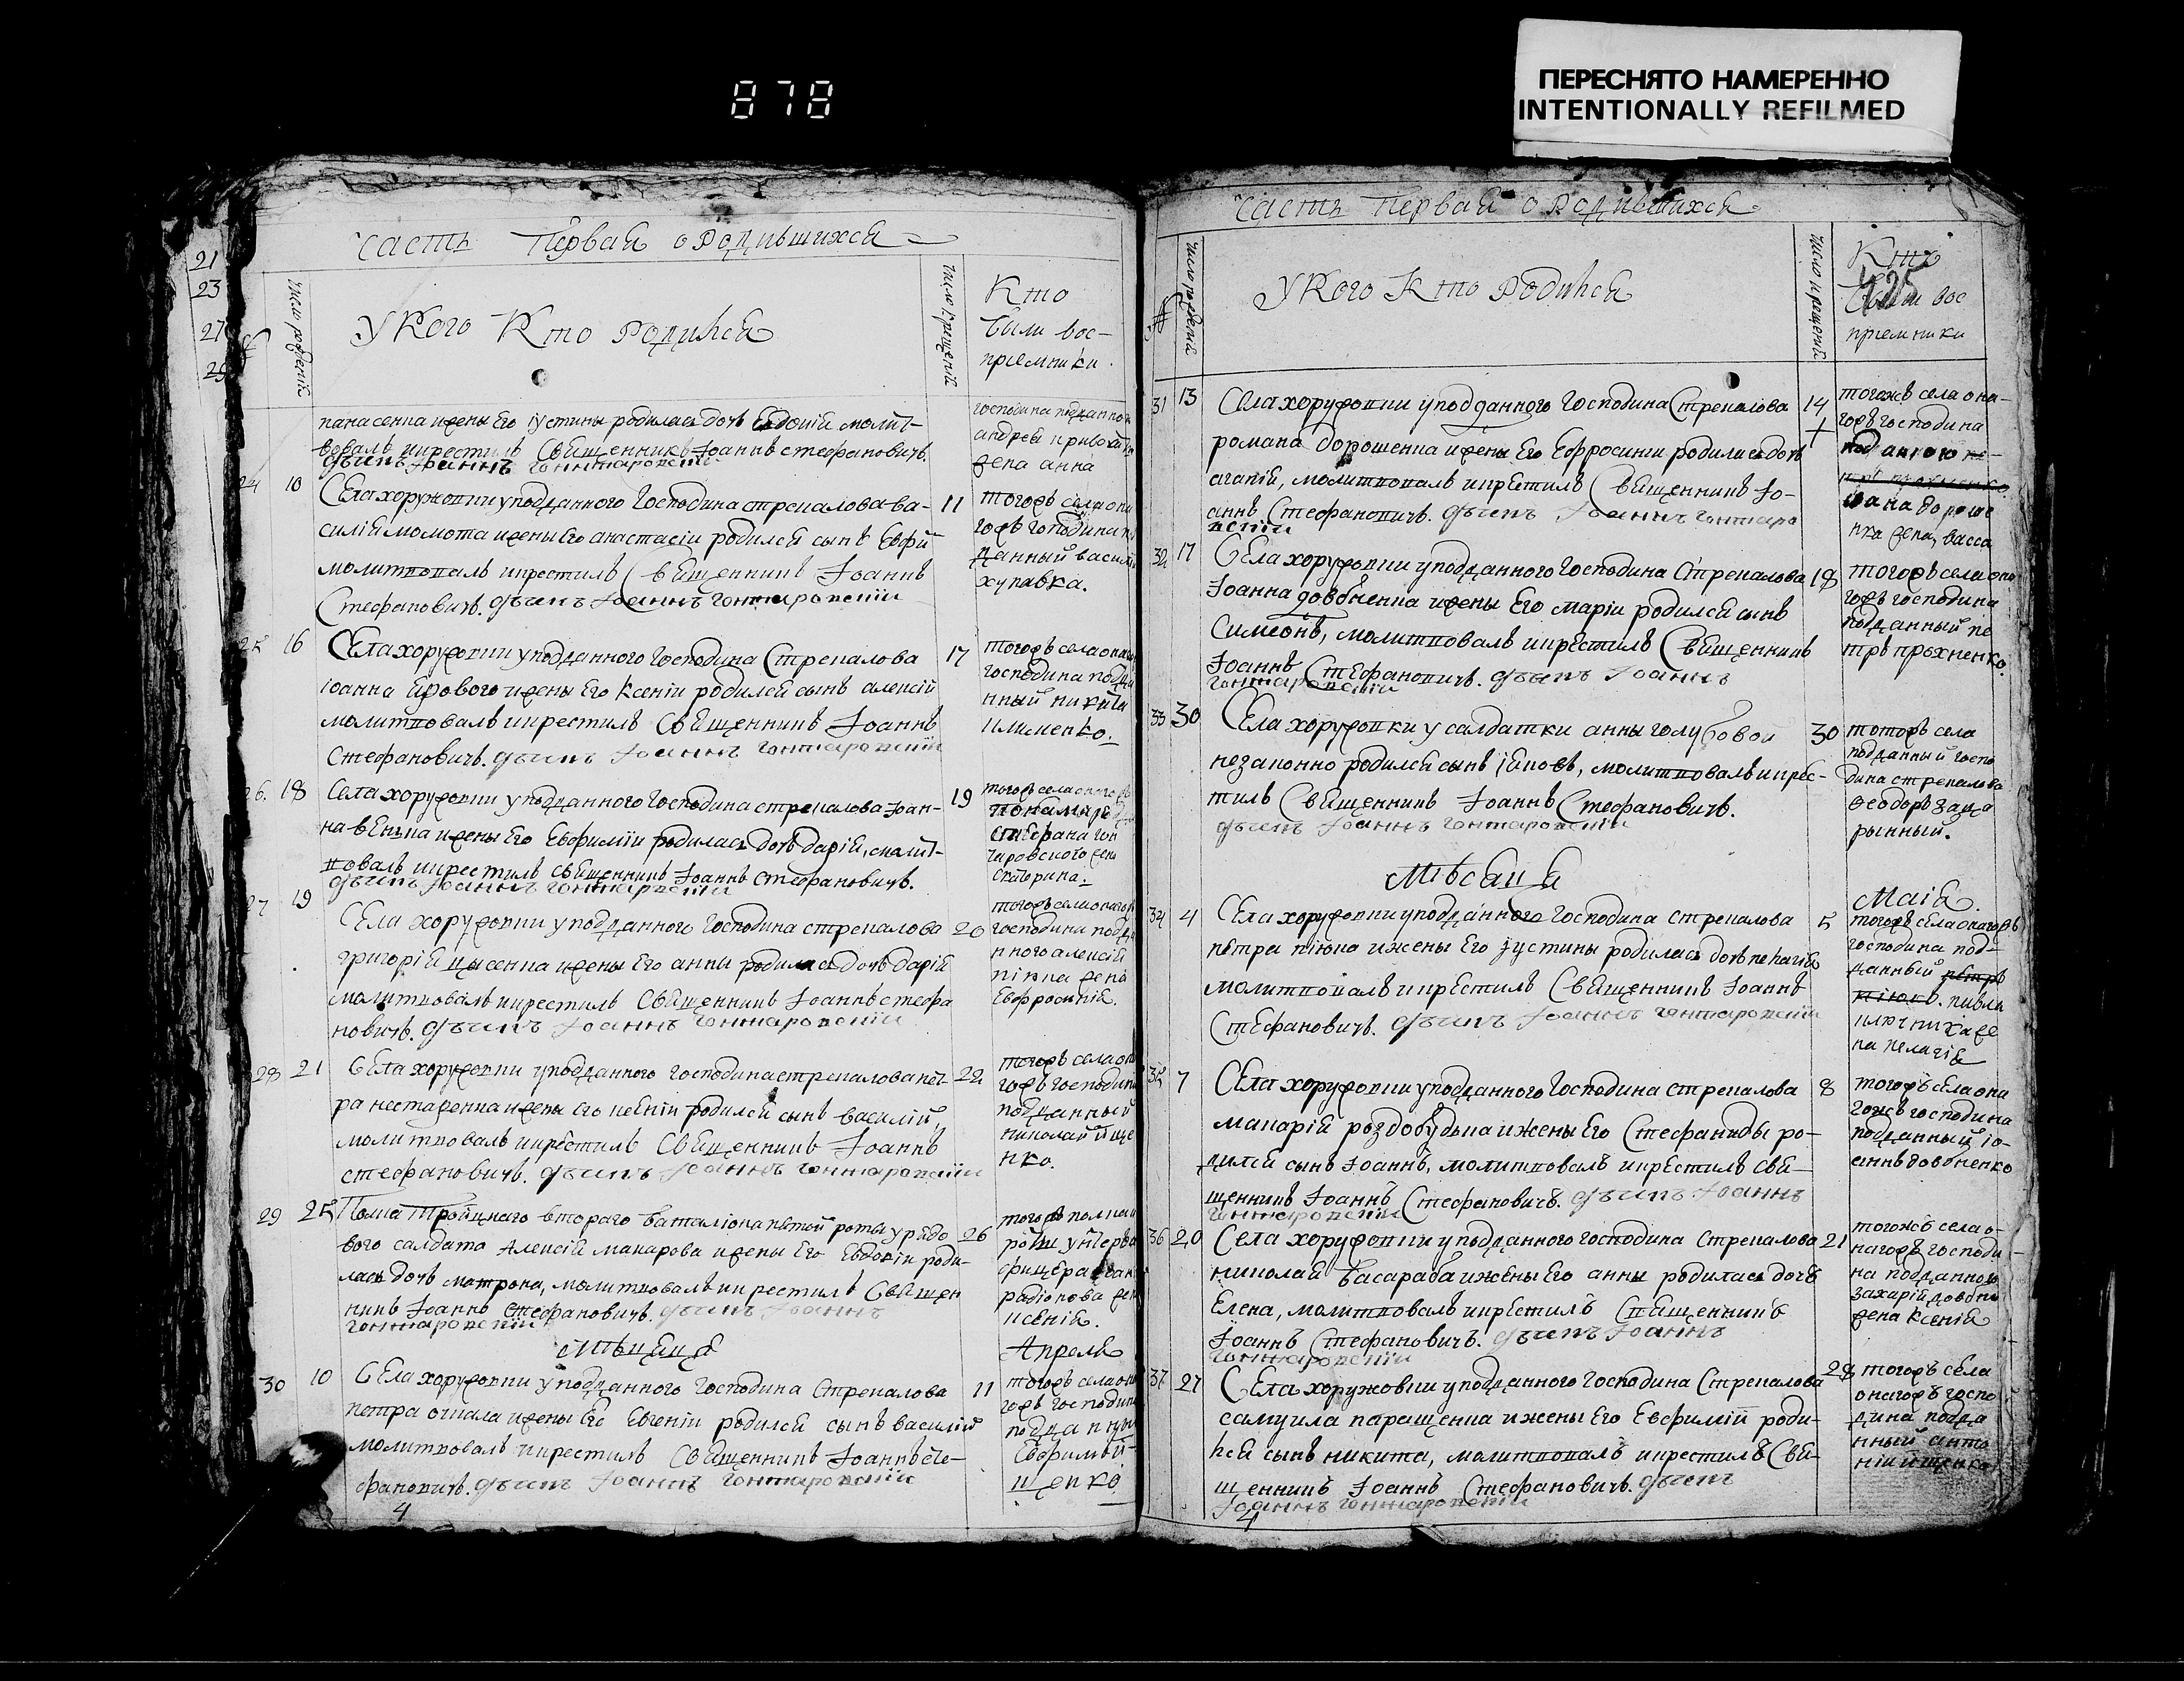 878
ПЕРЕСНЯТО НАМЕРЕННО
INTENTIONALLY REFILMED
21
23
27
29
Часть Первая о Родившихся
число рождения
У Кого Кто Родился
число крещения
Кто
были вос-
приемники.
панасенка и жены Его іустины родилась дочь Евдокія молит-
вовалъ и крестилъ Священникъ Іоаннъ Стефановичъ.
дьячекъ Іоаннъ Гончаровскій
господина подданного
андрея
жена анна
24 10
Села хоружовки у подданного Господина стрекалова ва-
силія момота и жены Его анастасіи родился сынъ Евфи
молитвовалъ и крестилъ Священникъ Іоаннъ
Стефановичъ. дьячекъ Іоаннъ Гончаровскій
11
тогожъ села она
гожъ господина по
данный васили
журавка.
25 16
Села хоружовки у подданного Господина Стрекалова
іоанна и жены Его Ксеніи родился сынъ алексій
молитвовалъ и крестилъ Священникъ Іоаннъ
Стефановичъ. дьячекъ Іоаннъ Гончаровскій
17
тогожъ села
господина подда
нный никита
клименко.
26. 18
Села хоружовки у подданного Господина стрекалова Іоан-
на и жены Его Евфиміи родилась дочь дарія, молит-
вовалъ и крестилъ священникъ Іоаннъ Стефановичъ.
дьячекъ Іоаннъ Гончаровскій
19
тогожъ села
пономаря
Стефана Гон
чаровского жена
Екатерина.
27 19
Села хоружовки у подданного Господина стрекалова
григорія и жены Его анны родилась дочь дарія
молитвовалъ и крестилъ Священникъ Іоаннъ стефа
новичъ. дьячекъ Іоаннъ Гончаровскій
20
тогожъ села
господина подда
нного алексія
жена
Евфросинія.
28 21
Села хоружовки у подданного господина стрекалова пет-
ра и жены Его ксеніи родился сынъ василій,
молитвовалъ и крестилъ Священникъ Іоаннъ
стефановичъ. дьячекъ Іоаннъ Гончаровскій
22
тогожъ села она
гожъ господина
подданный
николай
29 25
Полка Тройцкаго втораго баталіона пятой роты у рядо
вого салдата Алексія макарова и жены Его Евдокіи роди-
лась дочь матрона, молитвовалъ и крестилъ Священ
никъ Іоаннъ Стефановичъ. дьячекъ Іоаннъ
Гончаровскій
26
тогожъ полка
роты унтеръ
фицера
радіонова жен
ксенія.
Мѣсяца
Апреля
30 10
Села хоружовки у подданного Господина Стрекалова
петра и жены Его Евгеніи родился сынъ василій
молитвовалъ и крестилъ Священникъ Іоаннъ Сте-
фановичъ. дьячекъ Іоаннъ Гончаровскій
11
тогожъ села она
гожъ господина
подданный
Ефимъ
щенко
4
Часть Первая о Родившихся
число рожденія
У Кого Кто Родился
число крещенія
Кто
были вос
приемники
425
31 13
Села хоружовки у подданного Господина Стрекалова
романа дорошенка и жены Его Ефросиніи родилась дочь
агапія, молитвовалъ и крестилъ Священникъ Іо-
аннъ Стефановичъ. дьячекъ Іоаннъ Гончаро
вскій
14
тогожъ села она-
гожъ господина
подданного
дороше
нка жена, васса
32 17
Села хоружовки у подданного Господина Стрекалова
Іоанна довбненка и жены Его маріи родился сынъ
Симеонъ, молитвовалъ и крестилъ Священникъ
Іоаннъ Стефановичъ. дьячекъ Іоаннъ
Гончаровскій
18
тогожъ села она
гожъ господина
подданный пе
тръ прохненко.
33 30
Села хоружовки у салдатки анны голубовой
незаконно родился сынъ іяковъ, молитвовалъ и крес-
тилъ Священникъ Іоаннъ Стефановичъ.
дьячекъ Іоаннъ Гончаровскій
30
тогожъ села
подданный госпо
дина стрекалова
феодоръ
Мѣсаца
Маія.
34 4
Села хоружовки у подданного Господина стрекалова
петра и жены Его іустины родилась дочь пелагія
молитвовалъ и крестилъ Священникъ Іоаннъ
Стефановичъ. дьячекъ Іоаннъ Гончаровскій
5
тогожъ села онагожъ
господина под-
данный петръ
ключника же
на пелагія
35 7
Села хоружовки у подданного Господина стрекалова
макарія роздобудька и жены Его Стефаниды ро-
дился сынъ Іоаннъ, молитвовалъ и крестилъ Свя-
щенникъ Іоаннъ Стефановичъ. дьячекъ Іоаннъ
Гончаровскій
8
тогожъ села она
гожъ господина
подданный іо-
аннъ довбненко
36 20
Села хоружовки у подданного господина Стрекалова
николая басараба и жены Его анны родилась дочь
Елена, молитвовалъ и крестилъ Священникъ
Іоаннъ Стефановичъ. дьячекъ Іоаннъ
Гончаровскій
21
тогожъ села о-
нагожъ господи-
на подданного
захарія довбни
жена Ксенія
37 27
Села хоружовки у подданного Господина Стрекалова
самуила паращенка и жены Его Евфимій роди-
лся сынъ никита, молитвовалъ и крестилъ Свя-
щенникъ Іоаннъ Стефановичъ. дьячекъ
Іоаннъ Гончаровскій
28
тогожъ села
онагожъ госпо
дина подда
нный анто
ній ищенко
4